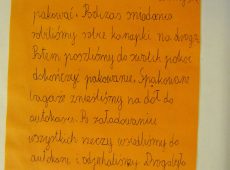 pakować. Podczas śniadania
zrobiliśmy sobie kanapki na drogę.
Potem poszliśmy do swoich pokoi
dokończyć pakowanie. Spakowane
bagaże znieśliśmy na dół do
autokaru. Po załadowaniu
wszystkich rzeczy wsiedliśmy do
autokaru i odjechaliśmy. Droga